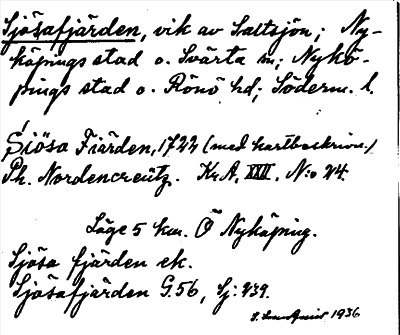 Sjösafjärden, vik av Saltsjön; Ny-
köpings stad o. Svärta sn; Nykö-
pings stad o. Rönö hd; Söderm. l.
Siösa Fiärden, 1722 (med kartbeskrivn.)
Ph. Nordencreutz. Kr.A. XXII. N:o 24.
Läge 5 km. Ö Nyköping.
Sjösa fjärden ek.
Sjösafjärden G.56, Sj: 939.
1936